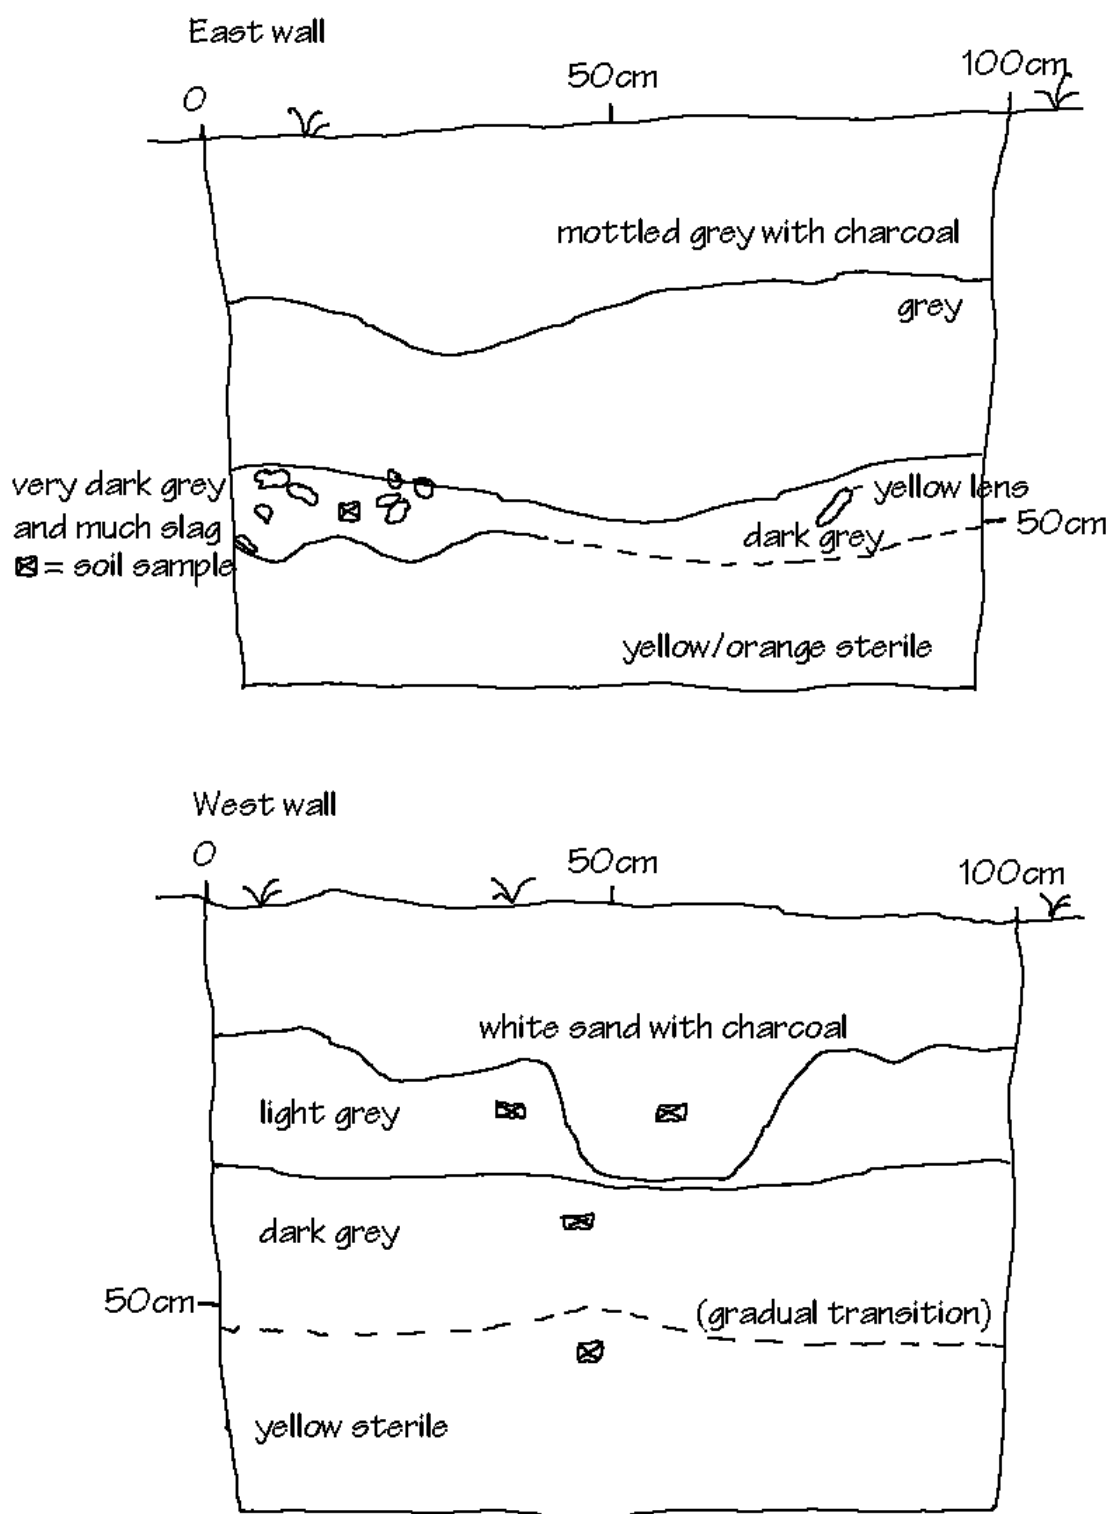 East wall
0
50cm
100cm
mottled grey with charcoal
grey
very dark grey
and much slag
= soil sample
yellow lens
dark grey
50cm
yellow/orange sterile
West wall
0
50cm
100cm
white sand with charcoal
light grey
dark grey
50cm
(gradual transition)
yellow sterile